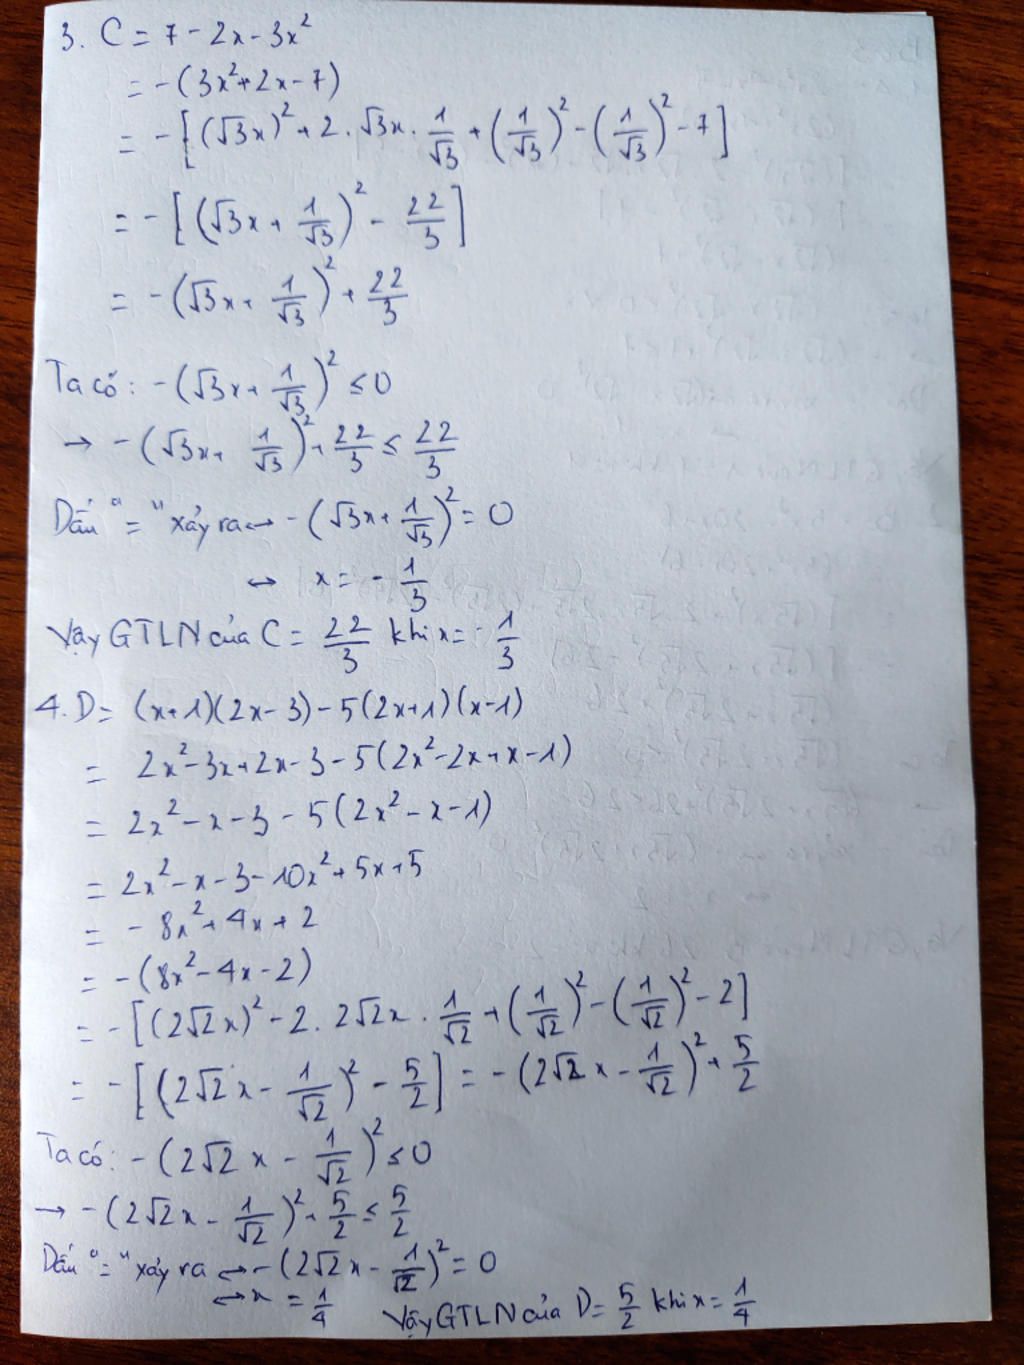 3. C = 7 - 2x - 3x²
= -(3x² + 2x - 7)
= -[(√3x)² + 2 . √3x . 1/√3 + (1/√3)² - (1/√3)² - 7]
= -[(√3x + 1/√3)² - 22/3]
= -(√3x + 1/√3)² + 22/3
Ta có: -(√3x + 1/√3)² ≤ 0
→ -(√3x + 1/√3)² + 22/3 ≤ 22/3
Dấu "=" xảy ra ↔ -(√3x + 1/√3)² = 0
↔ x = -1/3
Vậy GTLN của C = 22/3 khi x = -1/3
4. D = (x+1)(2x-3) - 5(2x+1)(x-1)
= 2x² - 3x + 2x - 3 - 5(2x² - 2x + x - 1)
= 2x² - x - 3 - 5(2x² - x - 1)
= 2x² - x - 3 - 10x² + 5x + 5
= -8x² + 4x + 2
= -(8x² - 4x - 2)
= -[(2√2x)² - 2 . 2√2x . 1/√2 + (1/√2)² - (1/√2)² - 2]
= -[(2√2x - 1/√2)² - 5/2] = -(2√2x - 1/√2)² + 5/2
Ta có: -(2√2x - 1/√2)² ≤ 0
→ -(2√2x - 1/√2)² + 5/2 ≤ 5/2
Dấu "=" xảy ra ↔ -(2√2x - 1/√2)² = 0
↔ x = 1/4 Vậy GTLN của D = 5/2 khi x = 1/4